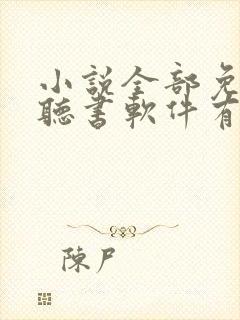 小説全部免
聽書軟件有
陳尸